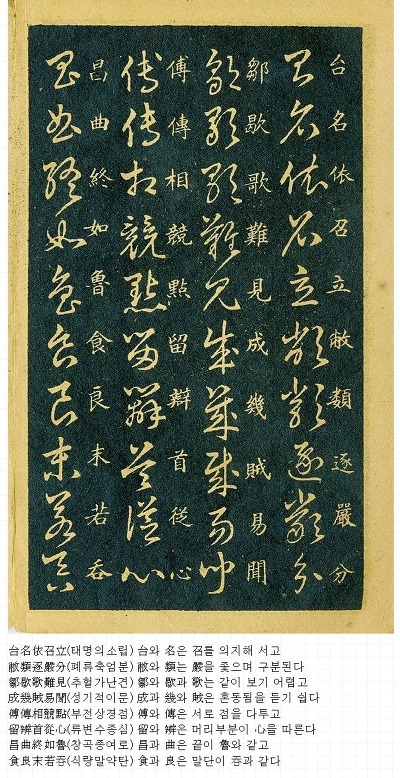 台名依召立敝類逐嚴分
台名依召立敝類逐嚴分
鄒歇歌難見成幾賊易聞
鄒歇歌難見成幾賊易聞
傅傳相競點留辯首從心
傅傳相競點留辯首從心
昌曲終如魯食良末若呑
昌曲終如魯食良末若呑
台名依召立(태명의소립) 台와 名은 召를 의지해 서고
敝類逐嚴分(폐류축엄분) 敝와 類는 嚴을 쫓으며 구분된다
鄒歇歌難見(추헐가난견) 鄒와 歇과 歌는 같이 보기 어렵고
成幾賊易聞(성기적이문) 成과 幾와 賊은 혼동됨을 듣기 쉽다
傅傳相競點(부전상경점) 傅와 傳은 서로 점을 다투고
留辨首從心(류변수종심) 留와 辨은 머리부분이 心을 따른다
昌曲終如魯(창곡종여로) 昌과 曲은 끝이 魯와 같고
食良末若呑(식량말약탄) 食과 良은 말단이 呑과 같다